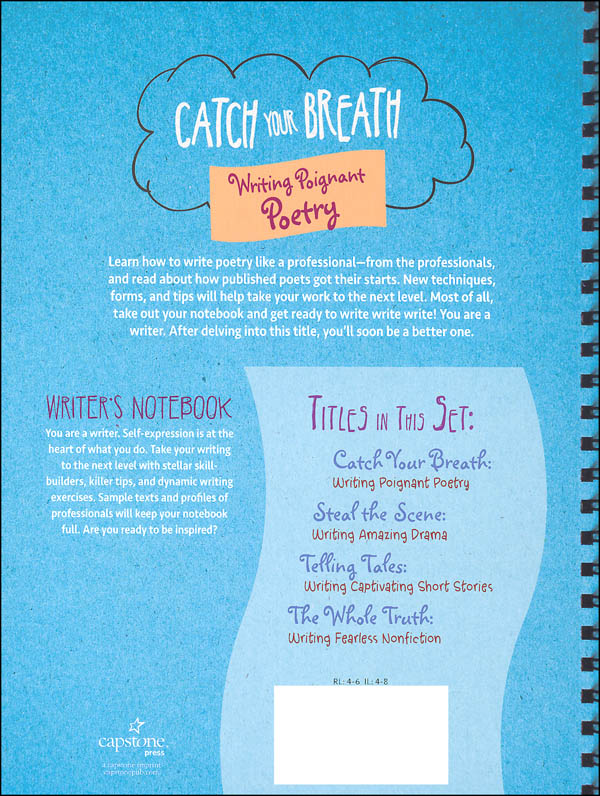 CATCH YOUR BREATH
Writing Poignant
Poetry
Learn how to write poetry like a professional—from the professionals,
and read about how published poets got their starts. New techniques,
forms, and tips will help take your work to the next level. Most of all,
take out your notebook and get ready to write write write! You are a
writer. After delving into this title, you'll soon be a better one.
WRITER'S NOTEBOOK
You are a writer. Self-expression is at the
heart of what you do. Take your writing
to the next level with stellar skill-
builders, killer tips, and dynamic writing
exercises. Sample texts and profiles of
professionals will keep your notebook
full. Are you ready to be inspired?
TITLES IN THIS SET:
Catch Your Breath:
Writing Poignant Poetry
Steal the Scene:
Writing Amazing Drama
Telling Tales:
Writing Captivating Short Stories
The Whole Truth:
Writing Fearless Nonfiction
RL: 4-6 IL: 4-8
capstone
press
a capstone imprint
capstonepub.com